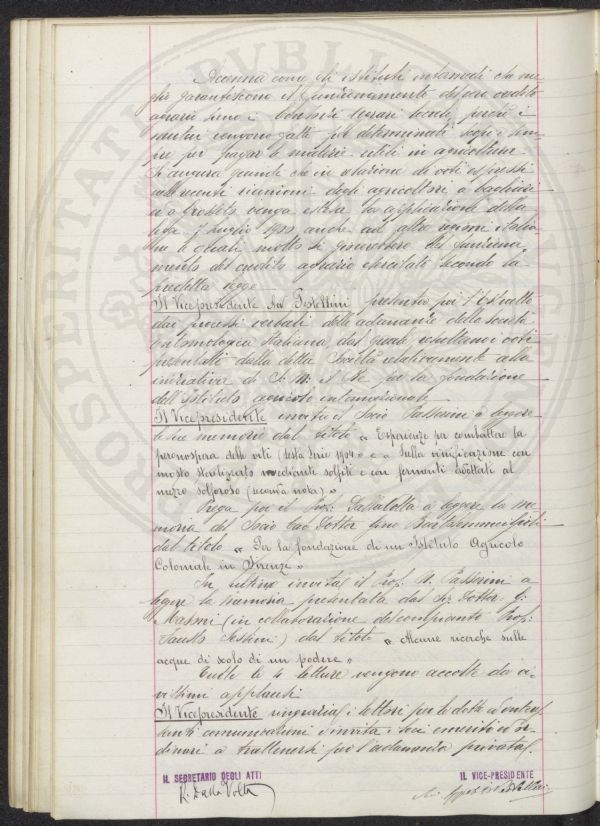 Accenna come gli istituti intermedi che me-
glio garantiscono il funzionamento del credito
agrario sono i Consorzi agrari locali, perchè i
vengono fatti per determinati scopi e sem-
pre per pagare le materie utili in agricoltura
Si augura quindi che in di voti espressi
in recenti riunioni degli agricoltori a Cagliari
e a Grosseto venga estesa la applicazione della
legge 7 Luglio anche ad altre regioni italia-
ne e molto si del funziona-
mento del credito agrario esercitato secondo la
predetta legge.
Il Vicepresidente Pestellini presenta poi l'Estratto
dai processi verbali delle adunanze della Società
Entomologica Italiana dal quale resultano i voti
presentati dalla detta Società relativamente alla
iniziativa di S. M. il Re per la fondazione
dell'Istituto agricolo internazionale
Il Vicepresidente invita il Socio Passerini a legge-
re le memorie dal titolo « Esperienze per combattere la
peronospora della viti (sesta serie 1904) » e « Sulla vinificazione con
mosto sterilizzato mediante solfiti e con fermenti adattati al
mezzo solforoso (seconda nota). »
Prega poi il Prof: Dalla Volta a leggere la me-
moria del Socio Cav. Dottor Gino Bartolommei Gioli
dal titolo « Per la fondazione di un Istituto Agricolo
Coloniale in Firenze »
In ultimo invita il Prof. N. Passerini a
leggere la memoria presentata dal Sig. Dottor G.
Masoni (in collaborazione del compianto Prof.
Fausto Sestini) dal titolo « Alcune ricerche sulle
acque di scolo di un podere »
Tutte le 4 letture vengono accolte da vi-
vissimi applausi.
Il Vicepresidente ringrazia i lettori per le dotte ed interes-
santi comunicazioni e invita i Soci emeriti ed or-
dinari a trattenersi per l'adunanza privata.
IL SEGRETARIO DEGLI ATTI IL VICE-PRESIDENTE
R. Dalla Volta